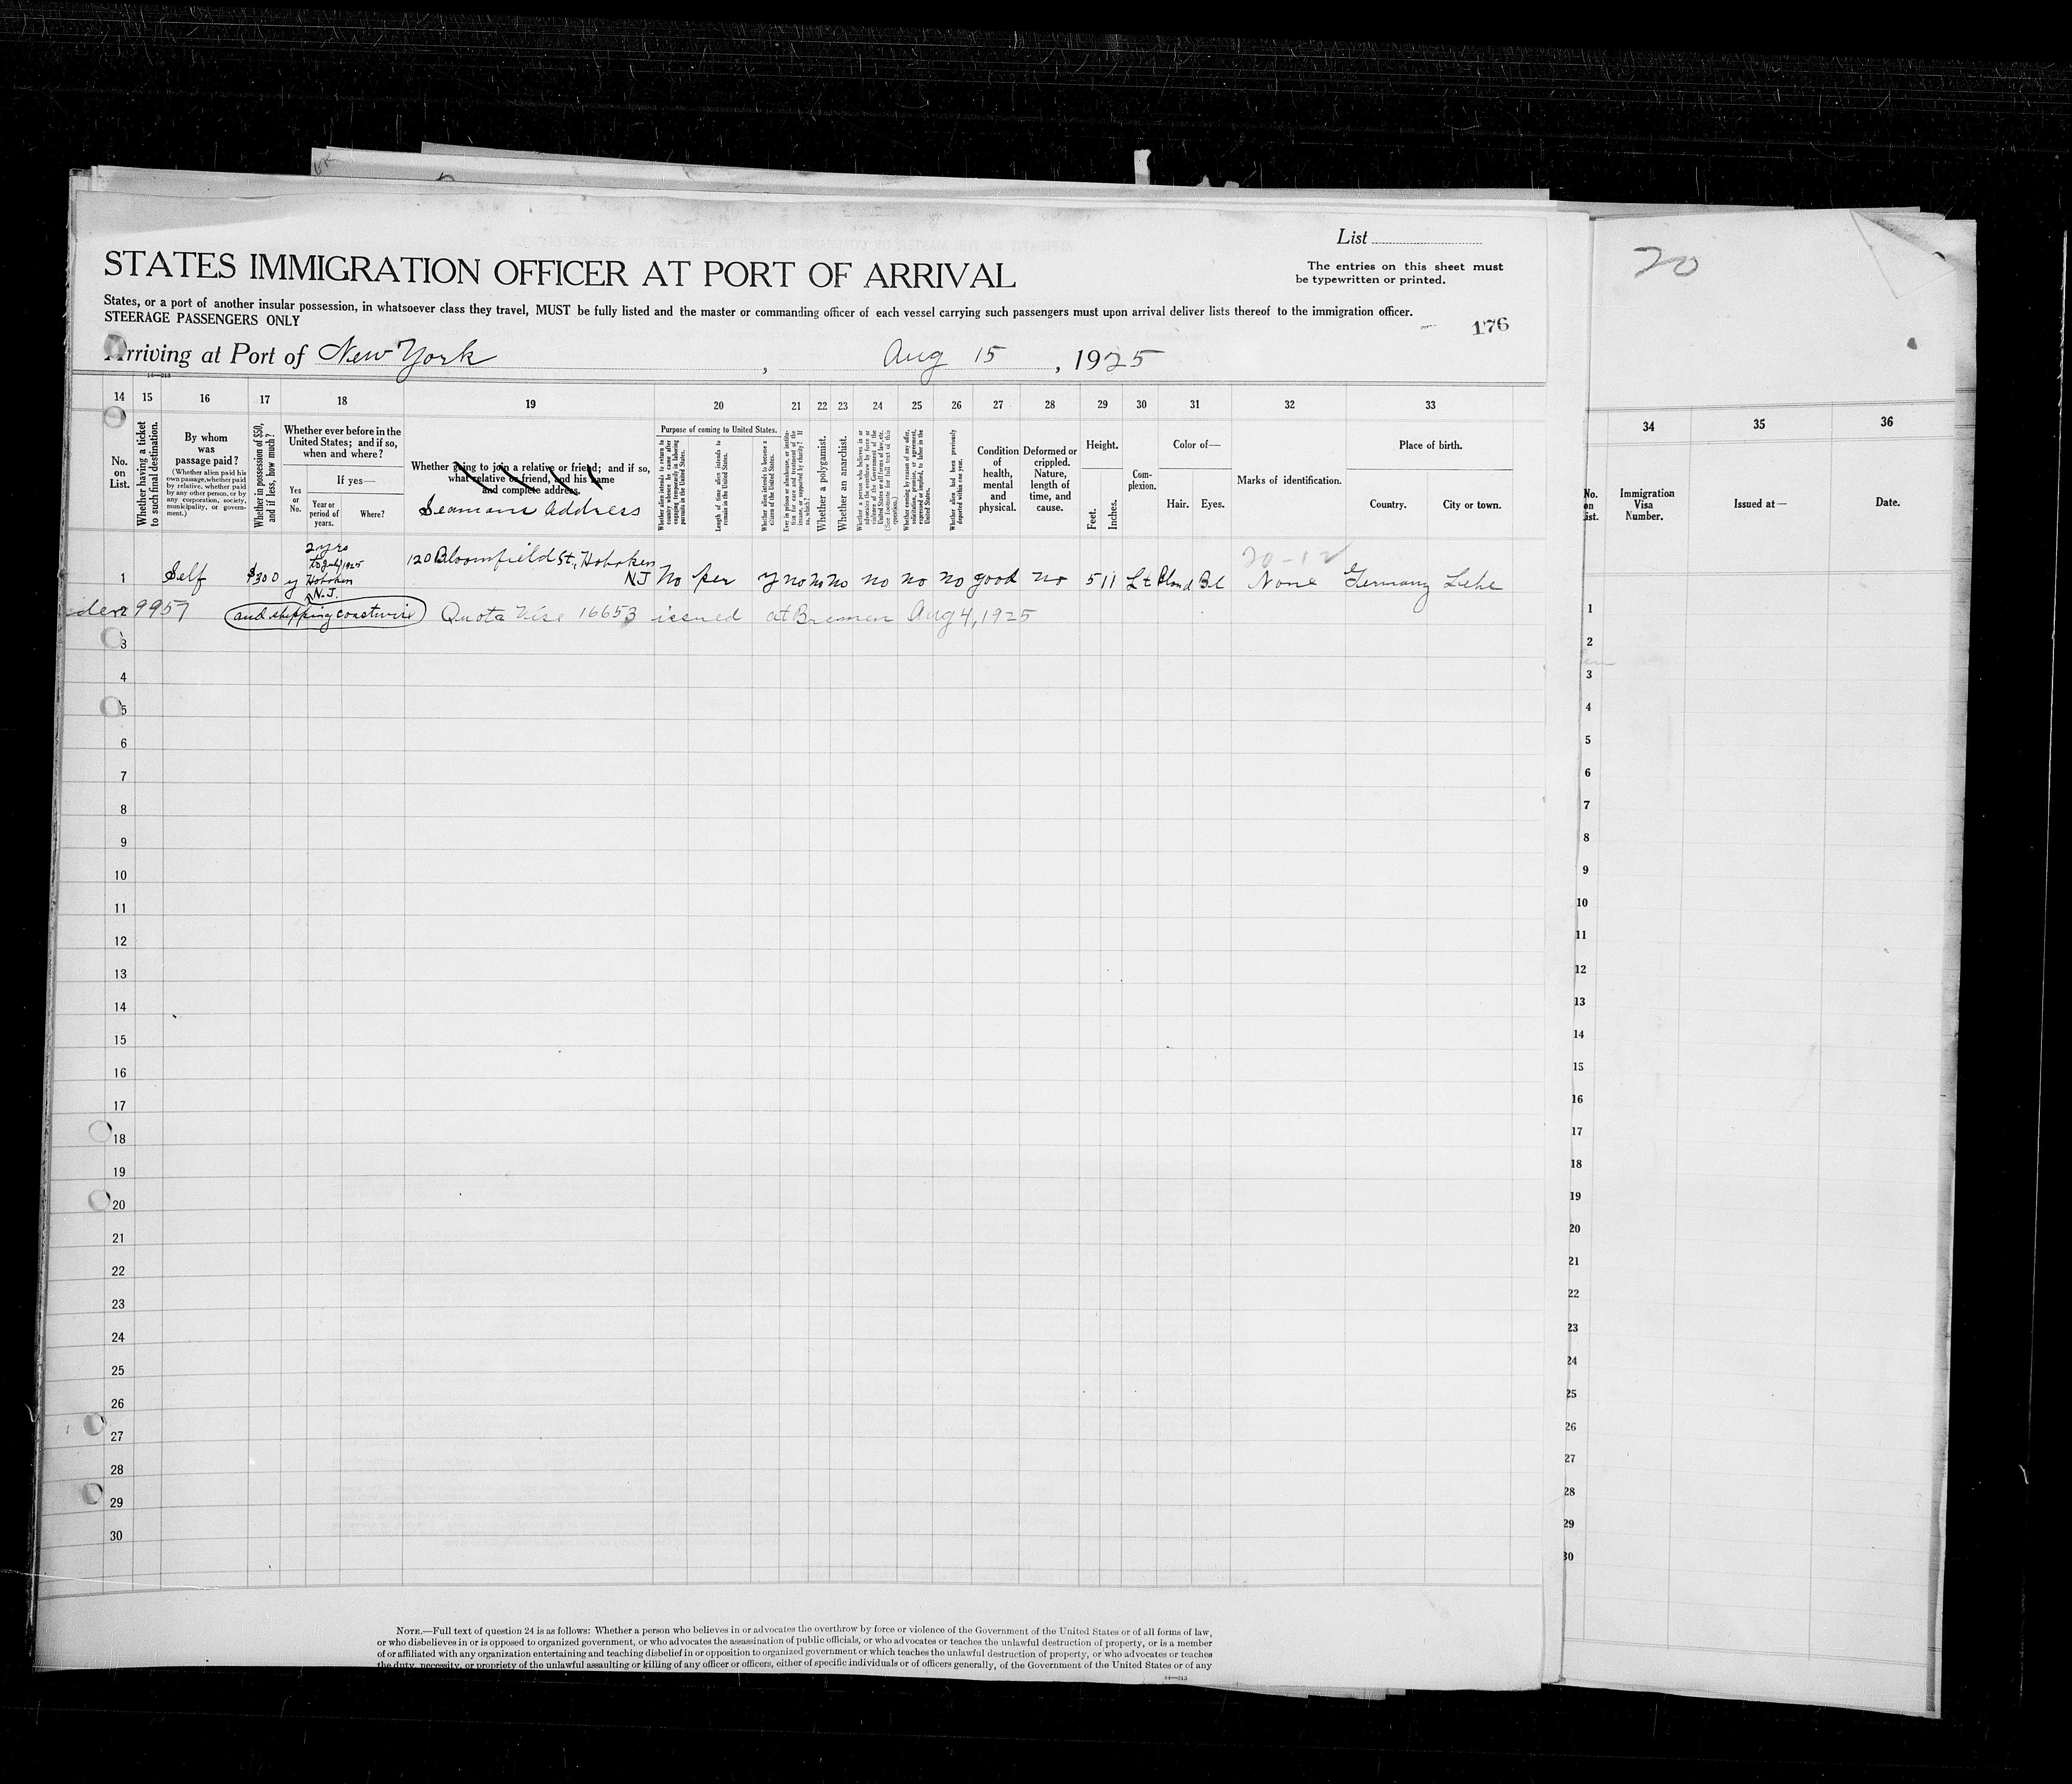 List
The entries on this sheet must
be typewritten or printed.
STATES IMMIGRATION OFFICER AT PORT OF ARRIVAL
States, or a port of another insular possession, in whatsoever class they travel, MUST be fully listed and the master or commanding officer of each vessel carrying such passengers must upon arrival deliver lists thereof to the immigration officer.
STEERAGE PASSENGERS ONLY
176
Arriving at Port of New York, Aug 15, 1925
14 15 16 17 18 19 20 21 22 23 24 25 26 27 28 29 30 31 32 33
No. on List.
Whether having a ticket to such final destination.
By whom was passage paid?
(Whether alien paid his own passage, whether paid by relative, whether paid by any other person, or by any corporation, society, municipality, or government.)
Whether in possession of $50, and if less, how much?
Whether ever before in the United States; and if so, when and where?
Yes or No.
If yes—
Year or period of years.
Where?
Whether going to join a relative or friend; and if so, what relative or friend, and his name and complete address.
Seamans Address
Purpose of coming to United States.
Whether alien intends to return to country whence he came after engaging temporarily in laboring pursuits in the United States.
Length of time alien intends to remain in the United States.
Whether alien intends to become a citizen of the United States.
Whether a polygamist.
Whether an anarchist.
Whether coming by reason of any offer, solicitation, promise, or agreement, expressed or implied, to labor in the United States.
Whether alien had been previously deported within one year.
Condition of health, mental and physical.
Deformed or crippled. Nature, length of time, and cause.
Height.
Feet. Inches.
Complexion.
Color of—
Hair. Eyes.
Marks of identification.
Place of birth.
Country. City or town.
2 yrs
to July 1925
20-12
1 Self $300 y Hoboken N.J. 120 Bloomfield St., Hoboken NJ No per y no no no no no no good no 5 11 Lt Blond Bl None Germany Lehe
2 9957 and shipping coastwise Quota Vise 16653 issued at Bremen Aug 4, 1925
3
4
5
6
7
8
9
10
11
12
13
14
15
16
17
18
19
20
21
22
23
24
25
26
27
28
29
30
NOTE.—Full text of question 24 is as follows: Whether a person who believes in or advocates the overthrow by force or violence of the Government of the United States or of all forms of law,
or who disbelieves in or is opposed to organized government, or who advocates the assassination of public officials, or who advocates or teaches the unlawful destruction of property, or is a member
of or affiliated with any organization entertaining and teaching disbelief in or opposition to organized government or which teaches the unlawful destruction of property, or who advocates or teaches
the duty, necessity, or propriety of the unlawful assaulting or killing of any officer or officers, either of specific individuals or of officers generally, of the Government of the United States or of any
20
34 35 36
No. on List.
Immigration Visa Number.
Issued at—
Date.
1
2
3
4
5
6
7
8
9
10
11
12
13
14
15
16
17
18
19
20
21
22
23
24
25
26
27
28
29
30